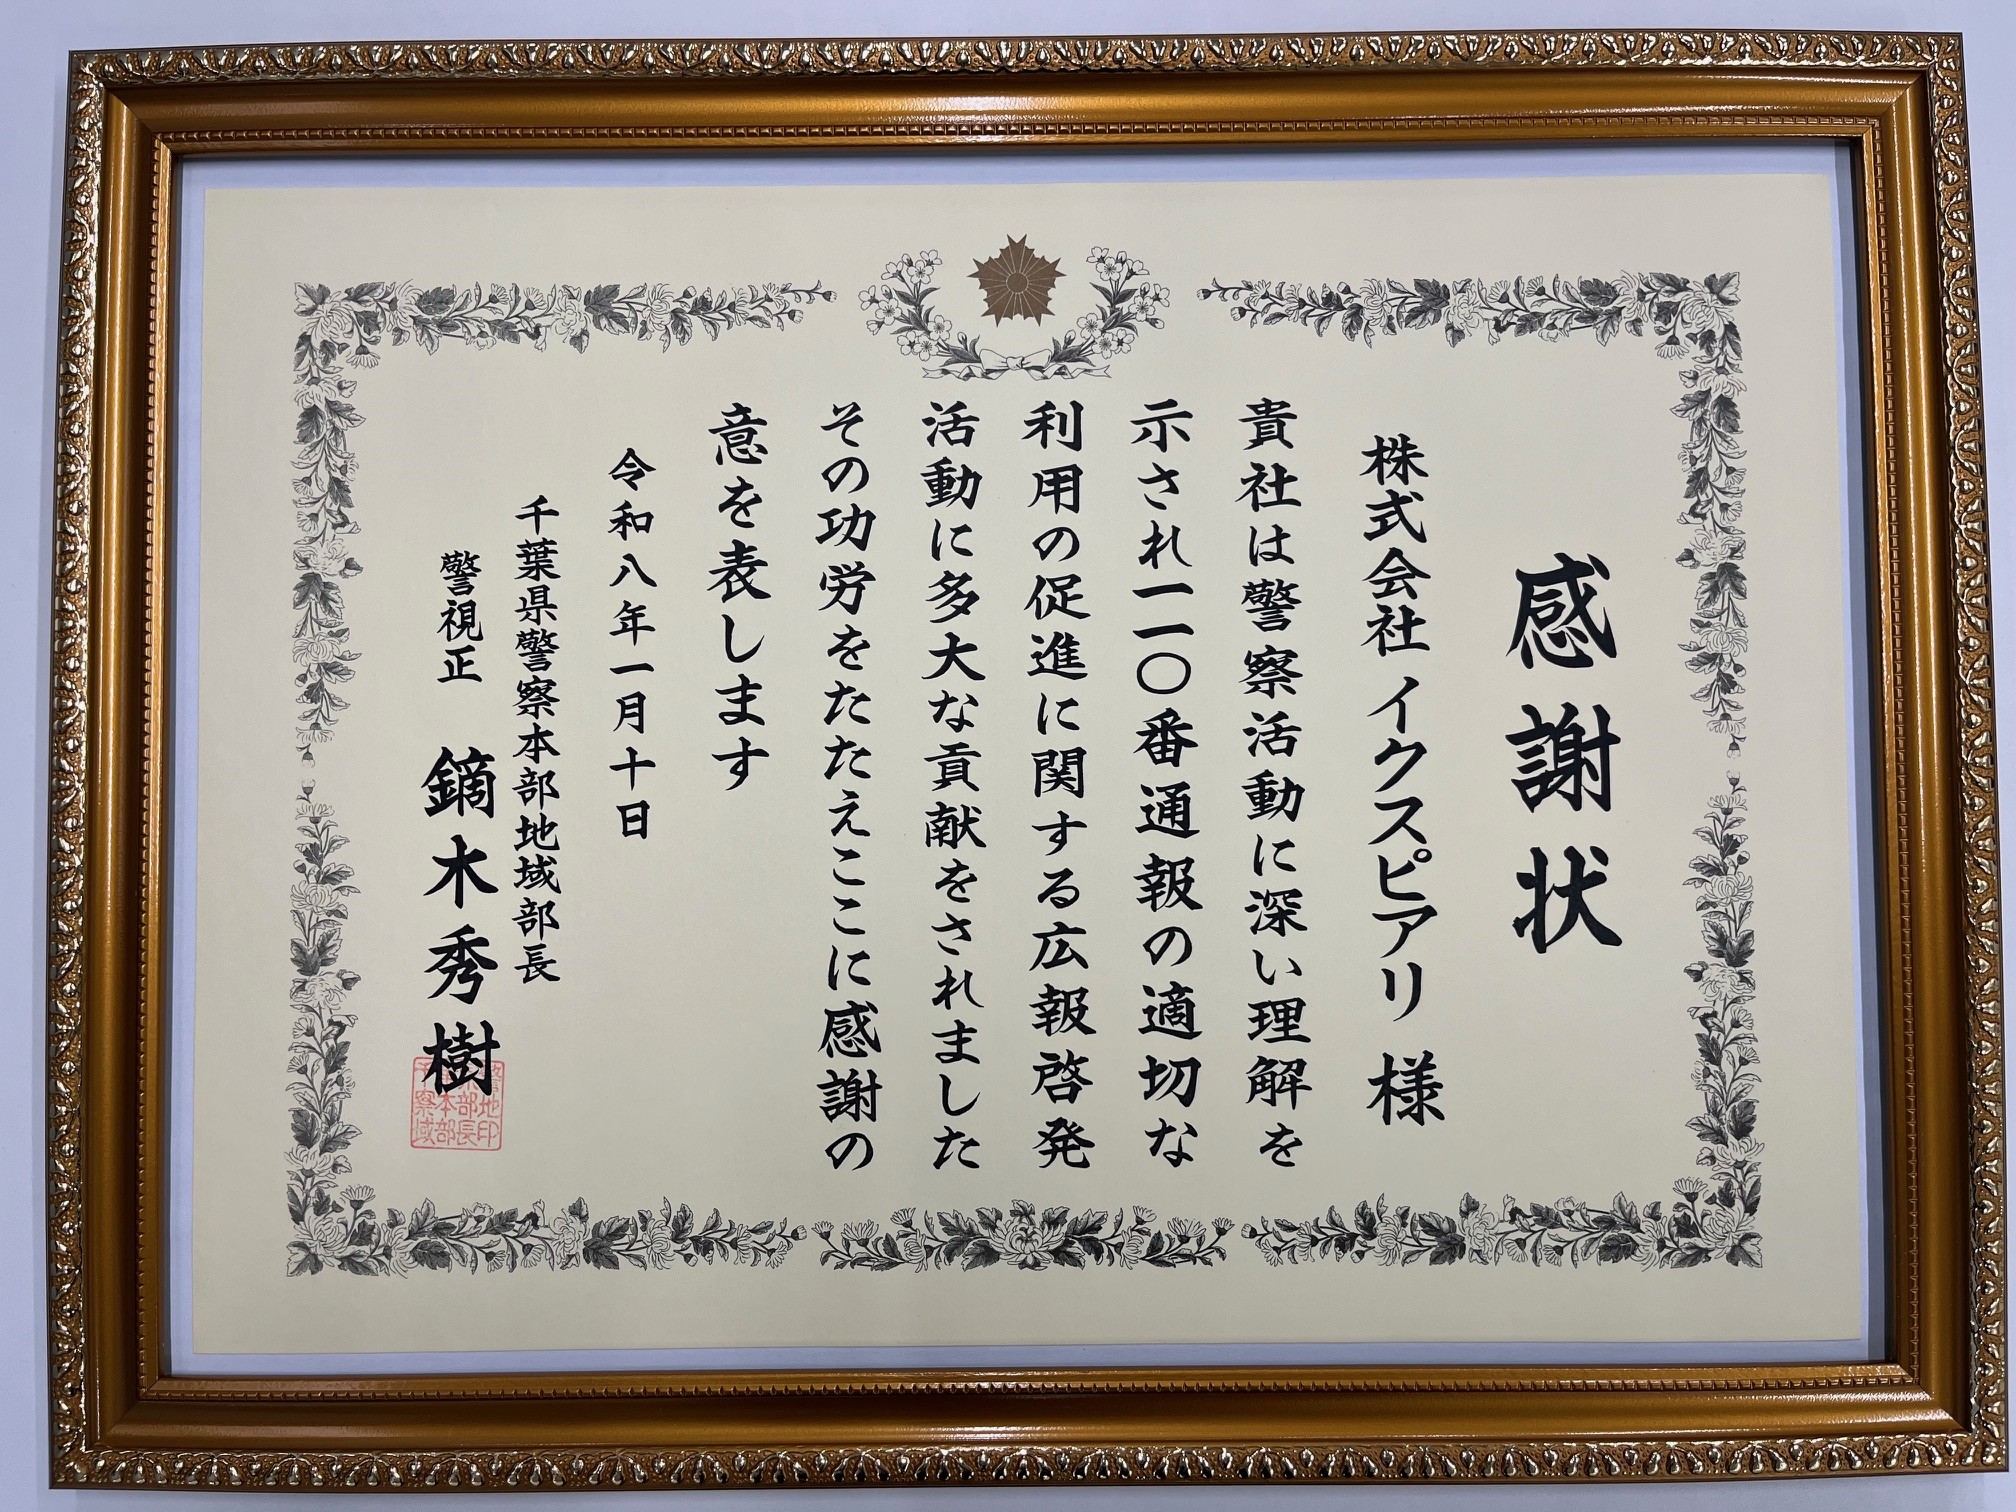 感謝状
株式会社 イクスピアリ 様
貴社は警察活動に深い理解を
示され一一〇番通報の適切な
利用の促進に関する広報啓発
活動に多大な貢献をされました
その功労をたたえここに感謝の
意を表します
令和八年一月十日
千葉県警察本部地域部長
警視正 鏑木秀樹